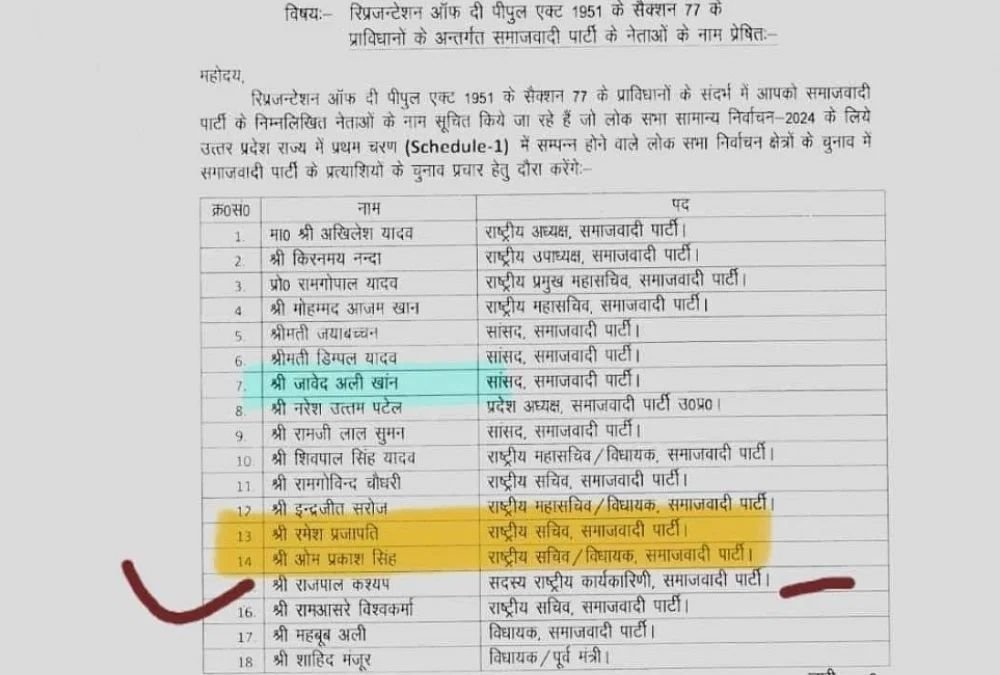 विषयः- रिप्रजन्टेशन ऑफ दी पीपुल एक्ट 1951 के सैक्शन 77 के
प्राविधानों के अन्तर्गत समाजवादी पार्टी के नेताओं के नाम प्रेषितः-
महोदय,
रिप्रजन्टेशन ऑफ दी पीपुल एक्ट 1951 के सैक्शन 77 के प्राविधानों के संदर्भ में आपको समाजवादी
पार्टी के निम्नलिखित नेताओं के नाम सूचित किये जा रहे हैं जो लोक सभा सामान्य निर्वाचन-2024 के लिये
उत्तर प्रदेश राज्य में प्रथम चरण (Schedule-1) में सम्पन्न होने वाले लोक सभा निर्वाचन क्षेत्रों के चुनाव में
समाजवादी पार्टी के प्रत्याशियों के चुनाव प्रचार हेतु दौरा करेंगेः-
क्र०सं० नाम पद
1. मा० श्री अखिलेश यादव राष्ट्रीय अध्यक्ष, समाजवादी पार्टी।
2. श्री किरनमय नन्दा राष्ट्रीय उपाध्यक्ष, समाजवादी पार्टी।
3. प्रो० रामगोपाल यादव राष्ट्रीय प्रमुख महासचिव, समाजवादी पार्टी।
4 श्री मोहम्मद आजम खान राष्ट्रीय महासचिव, समाजवादी पार्टी।
5. श्रीमती जयाबच्चन सांसद, समाजवादी पार्टी।
6. श्रीमती डिम्पल यादव सांसद, समाजवादी पार्टी।
7. श्री जावेद अली खांन सांसद, समाजवादी पार्टी।
8. श्री नरेश उत्तम पटेल प्रदेश अध्यक्ष, समाजवादी पार्टी उ०प्र०।
9. श्री रामजी लाल सुमन सांसद, समाजवादी पार्टी।
10. श्री शिवपाल सिंह यादव राष्ट्रीय महासचिव/विधायक, समाजवादी पार्टी।
11. श्री रामगोविन्द चौधरी राष्ट्रीय सचिव, समाजवादी पार्टी।
12. श्री इन्द्रजीत सरोज राष्ट्रीय महासचिव/विधायक, समाजवादी पार्टी।
13 श्री रमेश प्रजापति राष्ट्रीय सचिव, समाजवादी पार्टी।
14 श्री ओम प्रकाश सिंह राष्ट्रीय सचिव/विधायक, समाजवादी पार्टी।
श्री राजपाल कश्यप सदस्य राष्ट्रीय कार्यकारिणी, समाजवादी पार्टी।
16. श्री रामआसरे विश्वकर्मा राष्ट्रीय सचिव, समाजवादी पार्टी।
17. श्री महबूब अली विधायक, समाजवादी पार्टी।
18 श्री शाहिद मंजूर विधायक/पूर्व मंत्री।